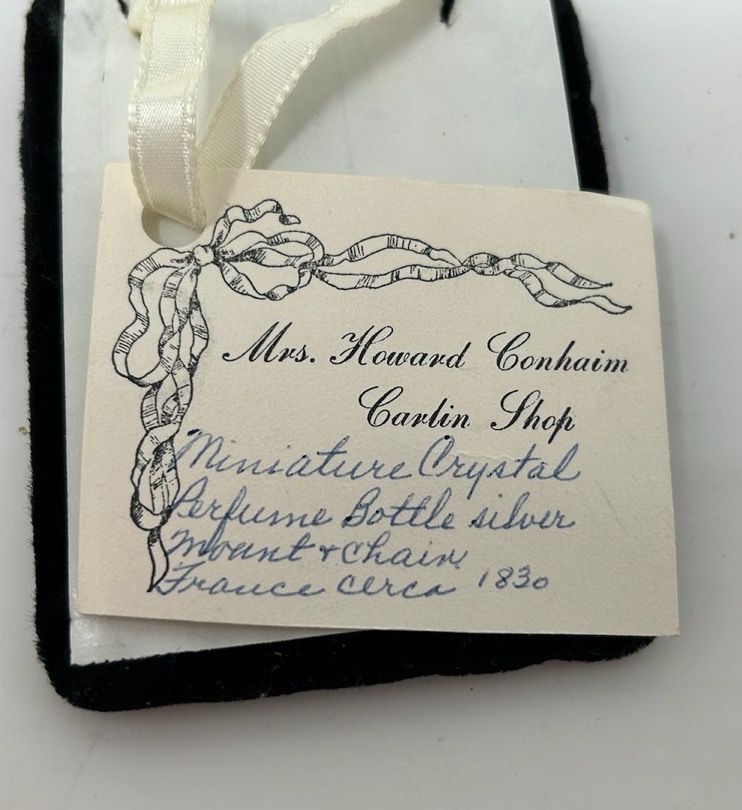 Mrs. Howard Conhaim
Carlin Shop
Miniature Crystal
Perfume Bottle silver
Mount + chain
France cerca 1830